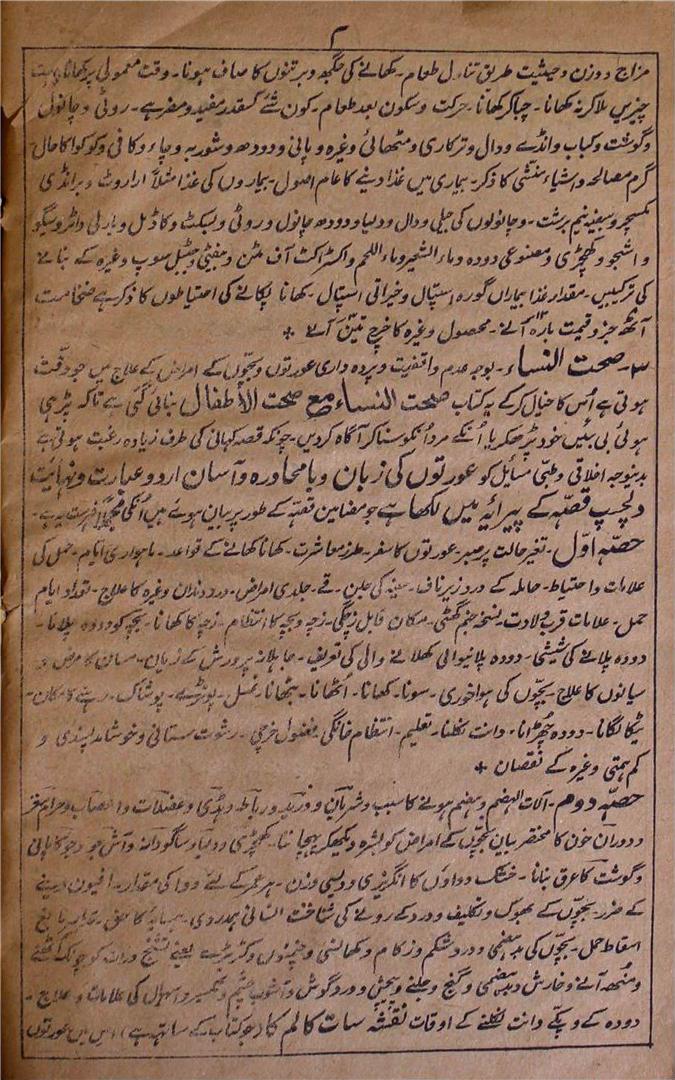 ۲
مزاج و وزن و حیثیت طریق تناول طعام۔ کھانے کی جگہ و برتنوں کا صاف ہونا۔ وقت معمولی پر کھانا بہت
چیزیں ملا کر نہ کھانا۔ چبا کر کھانا۔ حرکت و سکون بعد طعام۔ کون شے کسقدر مفید و مضر ہے۔ روٹی و چانول
و گوشت و کباب و انڈے و دال و ترکاری و مٹھائی وغیرہ و پانی و دودھ و شوربہ و چاء و کافی و کوکوا کا حال
گرم مصالحہ و اشیاء منشی کا ذکر۔ بیماری میں غذا دینے کا عام اصول۔ بیماروں کی غذا مثلاً اراروٹ و برانڈی
مکسچر و بیضہ نیم برشت۔ و چانولوں کی جیلی و دال و دلیا و دودھ چانول و روٹی و بسکٹ و کاڈل و بارلی واٹر و سیگو
و اشجو و کھچڑی و مصنوعی دودہ و ماء الشعیر و ماء اللحم و اکسٹراکٹ آف مٹن و بیفٹی و ویجٹبل سوپ وغیرہ کے بنانے
کی ترکیبیں۔ مقدار غذا بیماراں گورہ اسپتال و خیراتی اسپتال۔ کھانا پکانے کی احتیاطوں کا ذکر ہے ضخامت
آٹھ جز و قیمت بارہ آنے۔ محصول وغیرہ کا خرچ تین آنے ٭
۳۔ صحت النساء۔ بوجہ عدم واقفیت و پردہ داری عورتوں و بچوں کے امراض کے علاج میں جو دقت
ہوتی ہے اُس کا خیال کر کے یہ کتاب صحت النساء مع صحت الأطفال بنائی گئی ہے تاکہ پڑھی
ہوئی بی بئیں خود پڑھکر یا اُنکے مرد اُنکو سنا کر آگاہ کر دیں۔ چونکہ قصہ کہانی کی طرف زیادہ رغبت ہوتی ہے
بدینوجہ اخلاقی و طبی مسائل کو عورتوں کی زبان و با محاورہ و آسان اردو عبارت و نہایت
دلچسپ قصہ کے پیرائیہ میں لکھا ہے جو مضامین قصہ کے طور پر بیان ہوئے ہیں اُنکی فہرست یہ ہے۔
حصہ اوّل۔ تغیر حالت پر صبر۔ عورتوں کا سفر۔ طرز معاشرت۔ کھانا کھانے کے قواعد۔ ماہواری ایام۔ حمل کی
علامات و احتیاط۔ حاملہ کے درد زیر ناف۔ سینہ کی جلن۔ قے۔ جلدی امراض۔ درد دندان وغیرہ کا علاج۔ تعداد ایام
حمل۔ علامات قرب ولادت۔ نسخہ جنم گھٹی۔ مکان قابل زچگی۔ زچہ و بچہ کا انتظام۔ زچا کا کھانا۔ بچہ کو دودہ پلانا۔
دودہ پلانے کی شیشی۔ دودہ پلانیوالی کھلانے والی کی تعریف۔ جاہلانہ پرورش کے زیان۔ مسان کا مرض و
سیانوں کا علاج۔ بچوں کی ہوا خوری۔ سونا۔ کھانا۔ اُٹھانا۔ بٹھانا۔ غسل۔ پوتڑے۔ پوشاک۔ رہنے کا مکان۔
ٹیکا لگانا۔ دودہ چھڑانا۔ دانت نکلنا۔ تعلیم۔ انتظام خانگی۔ فضول خرچی۔ رشوت ستانی و خوشامد پسندی و
کم ہمتی وغیرہ کے نقصان ٭
حصہ دوم۔ آلات الہضم و ہضم ہونے کا سبب و شریان و ورید و رباط و ہڈی و عضلات و اعصاب و حرام مغز
و دوران خون کا مختصر بیان بچوں کے امراض کو بشرہ دیکھکر پہچاننا۔ کھچڑی و دلیا و ساگودانہ و آش جو و جو کا پانی
و گوشت کا عرق بنانا۔ خشک دواؤں کا انگریزی و دیسی وزن۔ ہر عمر کے لئے دوا کی مقدار۔ افیون دینے
کے ضرر۔ بچوں کے بھوک و تکلیف و درد کے رونے کی شناخت انسانی ہمدردی۔ ہمسایہ کا حق۔
اسقاط حمل۔ بچوں کی بدہضمی و درد شکم و زکام و کھانسی و کمیڑے یعنے تشنج
و منھ آنے و خارش و بدہضمی و گنج و جلنے و پیچش و درد گوش و آشوب چشم و نکسیر و اسہال کی علامات و علاج۔
دودہ کے و پکے دانت نکلنے کے اوقات نقشہ سات کالم کا (جو کتاب کے ساتھ ہے) اس میں عورتوں